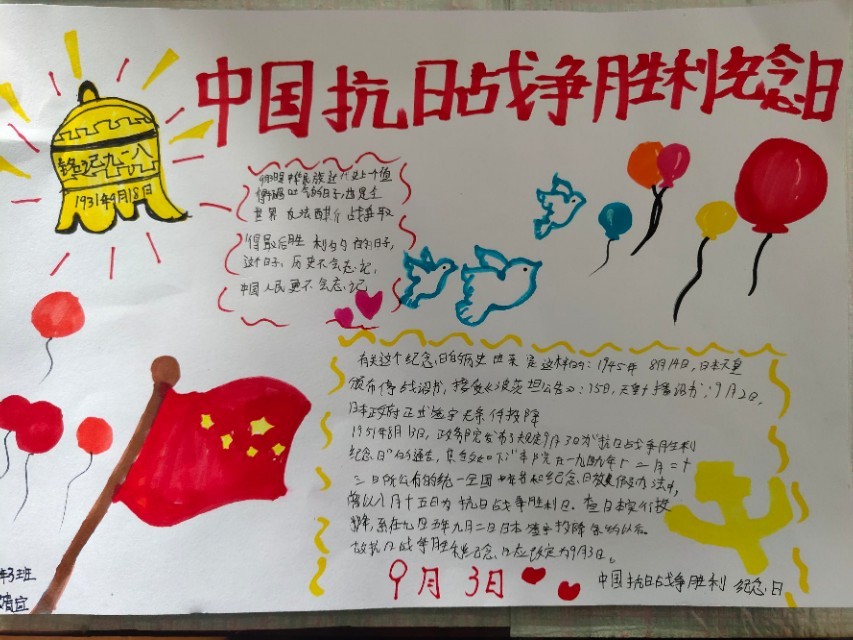 中国抗日战争胜利纪念日
铭记九一八
1931年9月18日
民族近代史上个值
得 吐气的日子,也是全
世界 反法西斯 战争取
得最后胜 利的 日子,
这个日子,历史不会忘记,
中国人民更不会忘记
有关这个纪念日的历史 由来 是 这样的:1945年 8月14日,日本天皇
颁布停战诏书,接受《波茨坦公告》;15日,天皇 播诏书;9月2日,
日本政府正式 无条件投降
1951年8月13日,政务院发布了规定9月3日为"抗日战争胜利
纪念日"的通告, 本院在一九四九年十二月二十
三日所公布的统一全国年节和纪念日放假办法中,
曾以八月十五日为抗日战争胜利日。查日本实行投
降,系在九四五年九月二日日本 投降 以后。
故抗日战争胜利纪念日应改定为9月3日。
9月3日
中国抗日战争胜利 纪念日
年3班